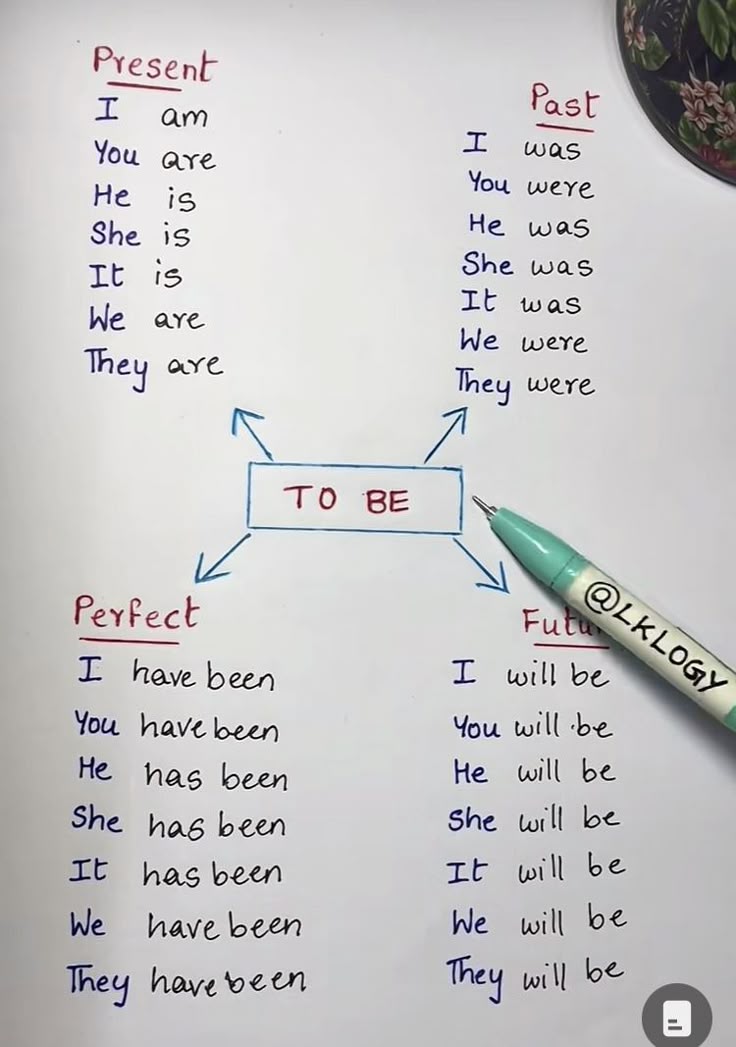 Present
I am
You are
He is
She is
It is
We are
They are
Past
I was
You were
He was
She was
It was
We were
They were
TO BE
@LKLOGY
Perfect
I have been
You have been
He has been
She has been
It has been
We have been
They have been
I will be
You will be
He will be
She will be
It will be
We will be
They will be